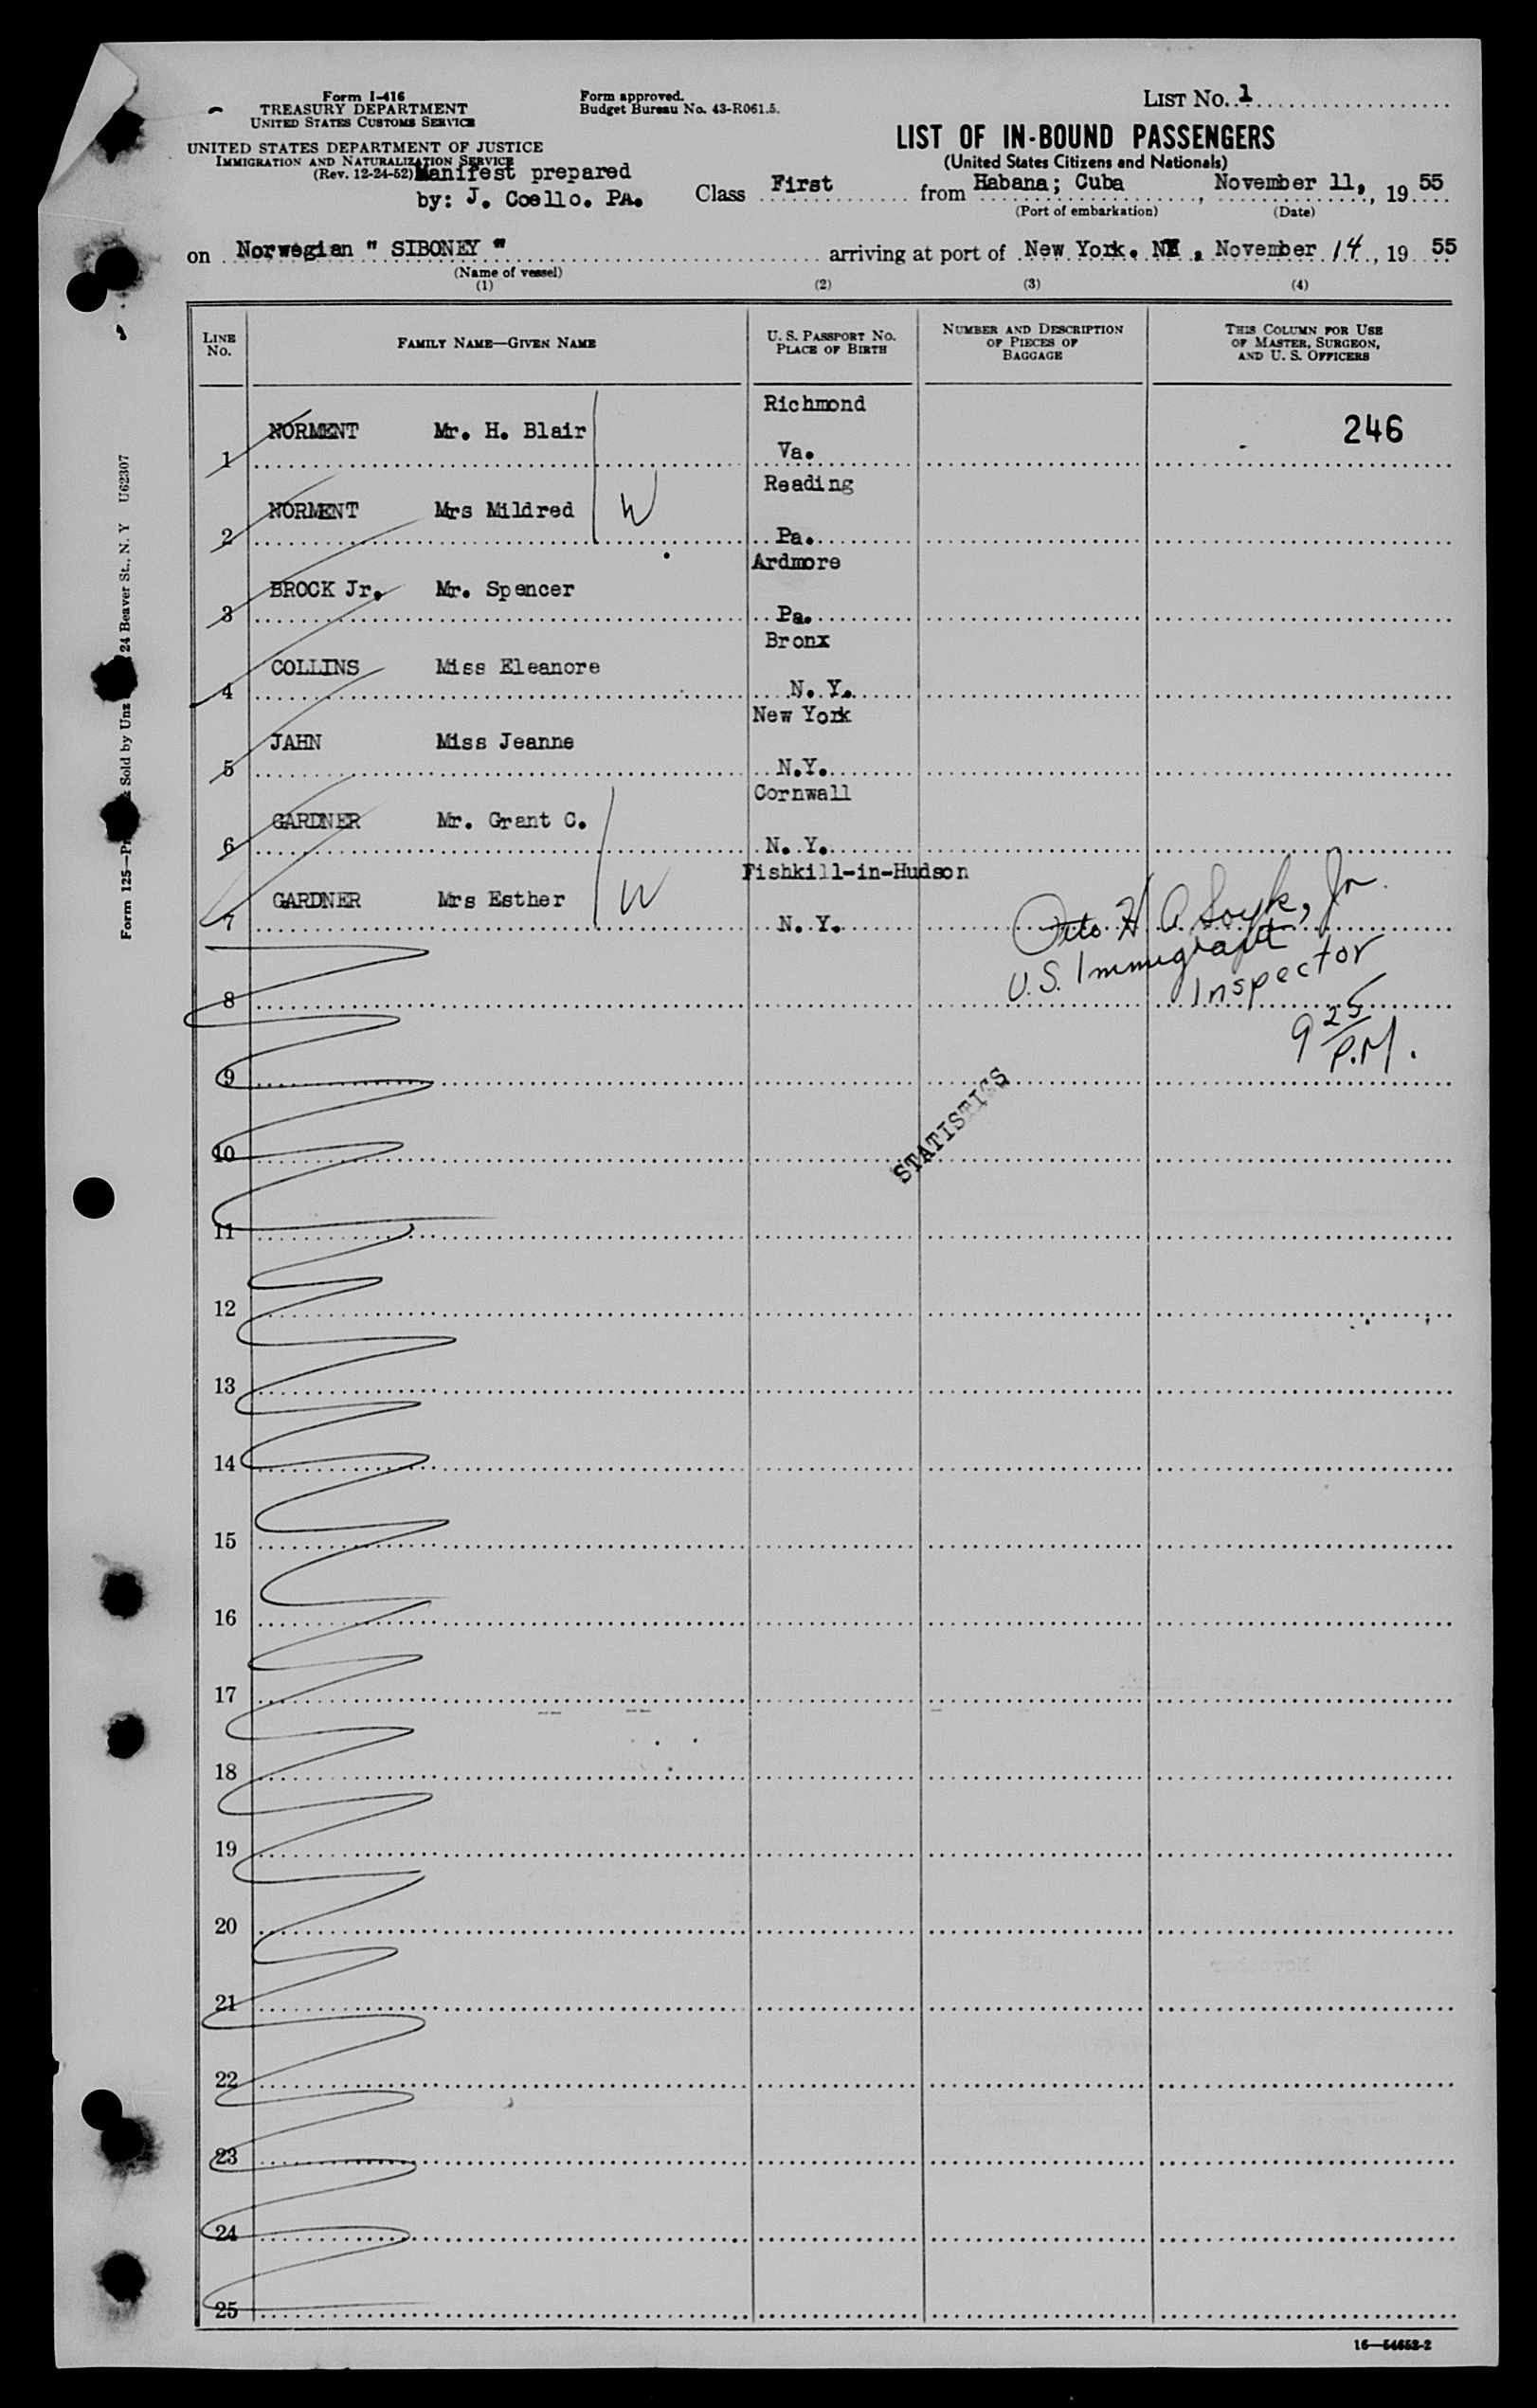 Form I-416
TREASURY DEPARTMENT
UNITED STATES CUSTOMS SERVICE
UNITED STATES DEPARTMENT OF JUSTICE
IMMIGRATION AND NATURALIZATION SERVICE
(Rev. 12-24-52)
Manifest prepared
by: J. Coello. PA.
Form approved.
Budget Bureau No. 43-R061.5.
LIST No. 1
LIST OF IN-BOUND PASSENGERS
(United States Citizens and Nationals)
Class First from Habana; Cuba, November 11, 1955
(Port of embarkation) (Date)
on Norwegian " SIBONEY " arriving at port of New York. , November 14, 1955
(Name of vessel)
(1) (2) (3) (4)
LINE No. FAMILY NAME—GIVEN NAME U. S. PASSPORT No. PLACE OF BIRTH NUMBER AND DESCRIPTION OF PIECES OF BAGGAGE THIS COLUMN FOR USE OF MASTER, SURGEON, AND U. S. OFFICERS
Richmond
1 NORMENT Mr. H. Blair Va. 246
Reading
2 NORMENT Mrs Mildred W Pa.
Ardmore
3 BROCK Jr. Mr. Spencer Pa.
Bronx
4 COLLINS Miss Eleanore N. Y.
New York
5 JAHN Miss Jeanne N.Y.
Cornwall
6 GARDNER Mr. Grant C. N. Y.
Fishkill-in-Hudson
7 GARDNER Mrs Esther W N. Y.
Otto H A Jr.
U.S. Immigrant
Inspector
8
9 25 P.M.
9
STATISTICS
10
11
12
13
14
15
16
17
18
19
20
21
22
23
24
25
16—54652-2
Form 125— Sold by Unz 24 Beaver St., N. Y U62307